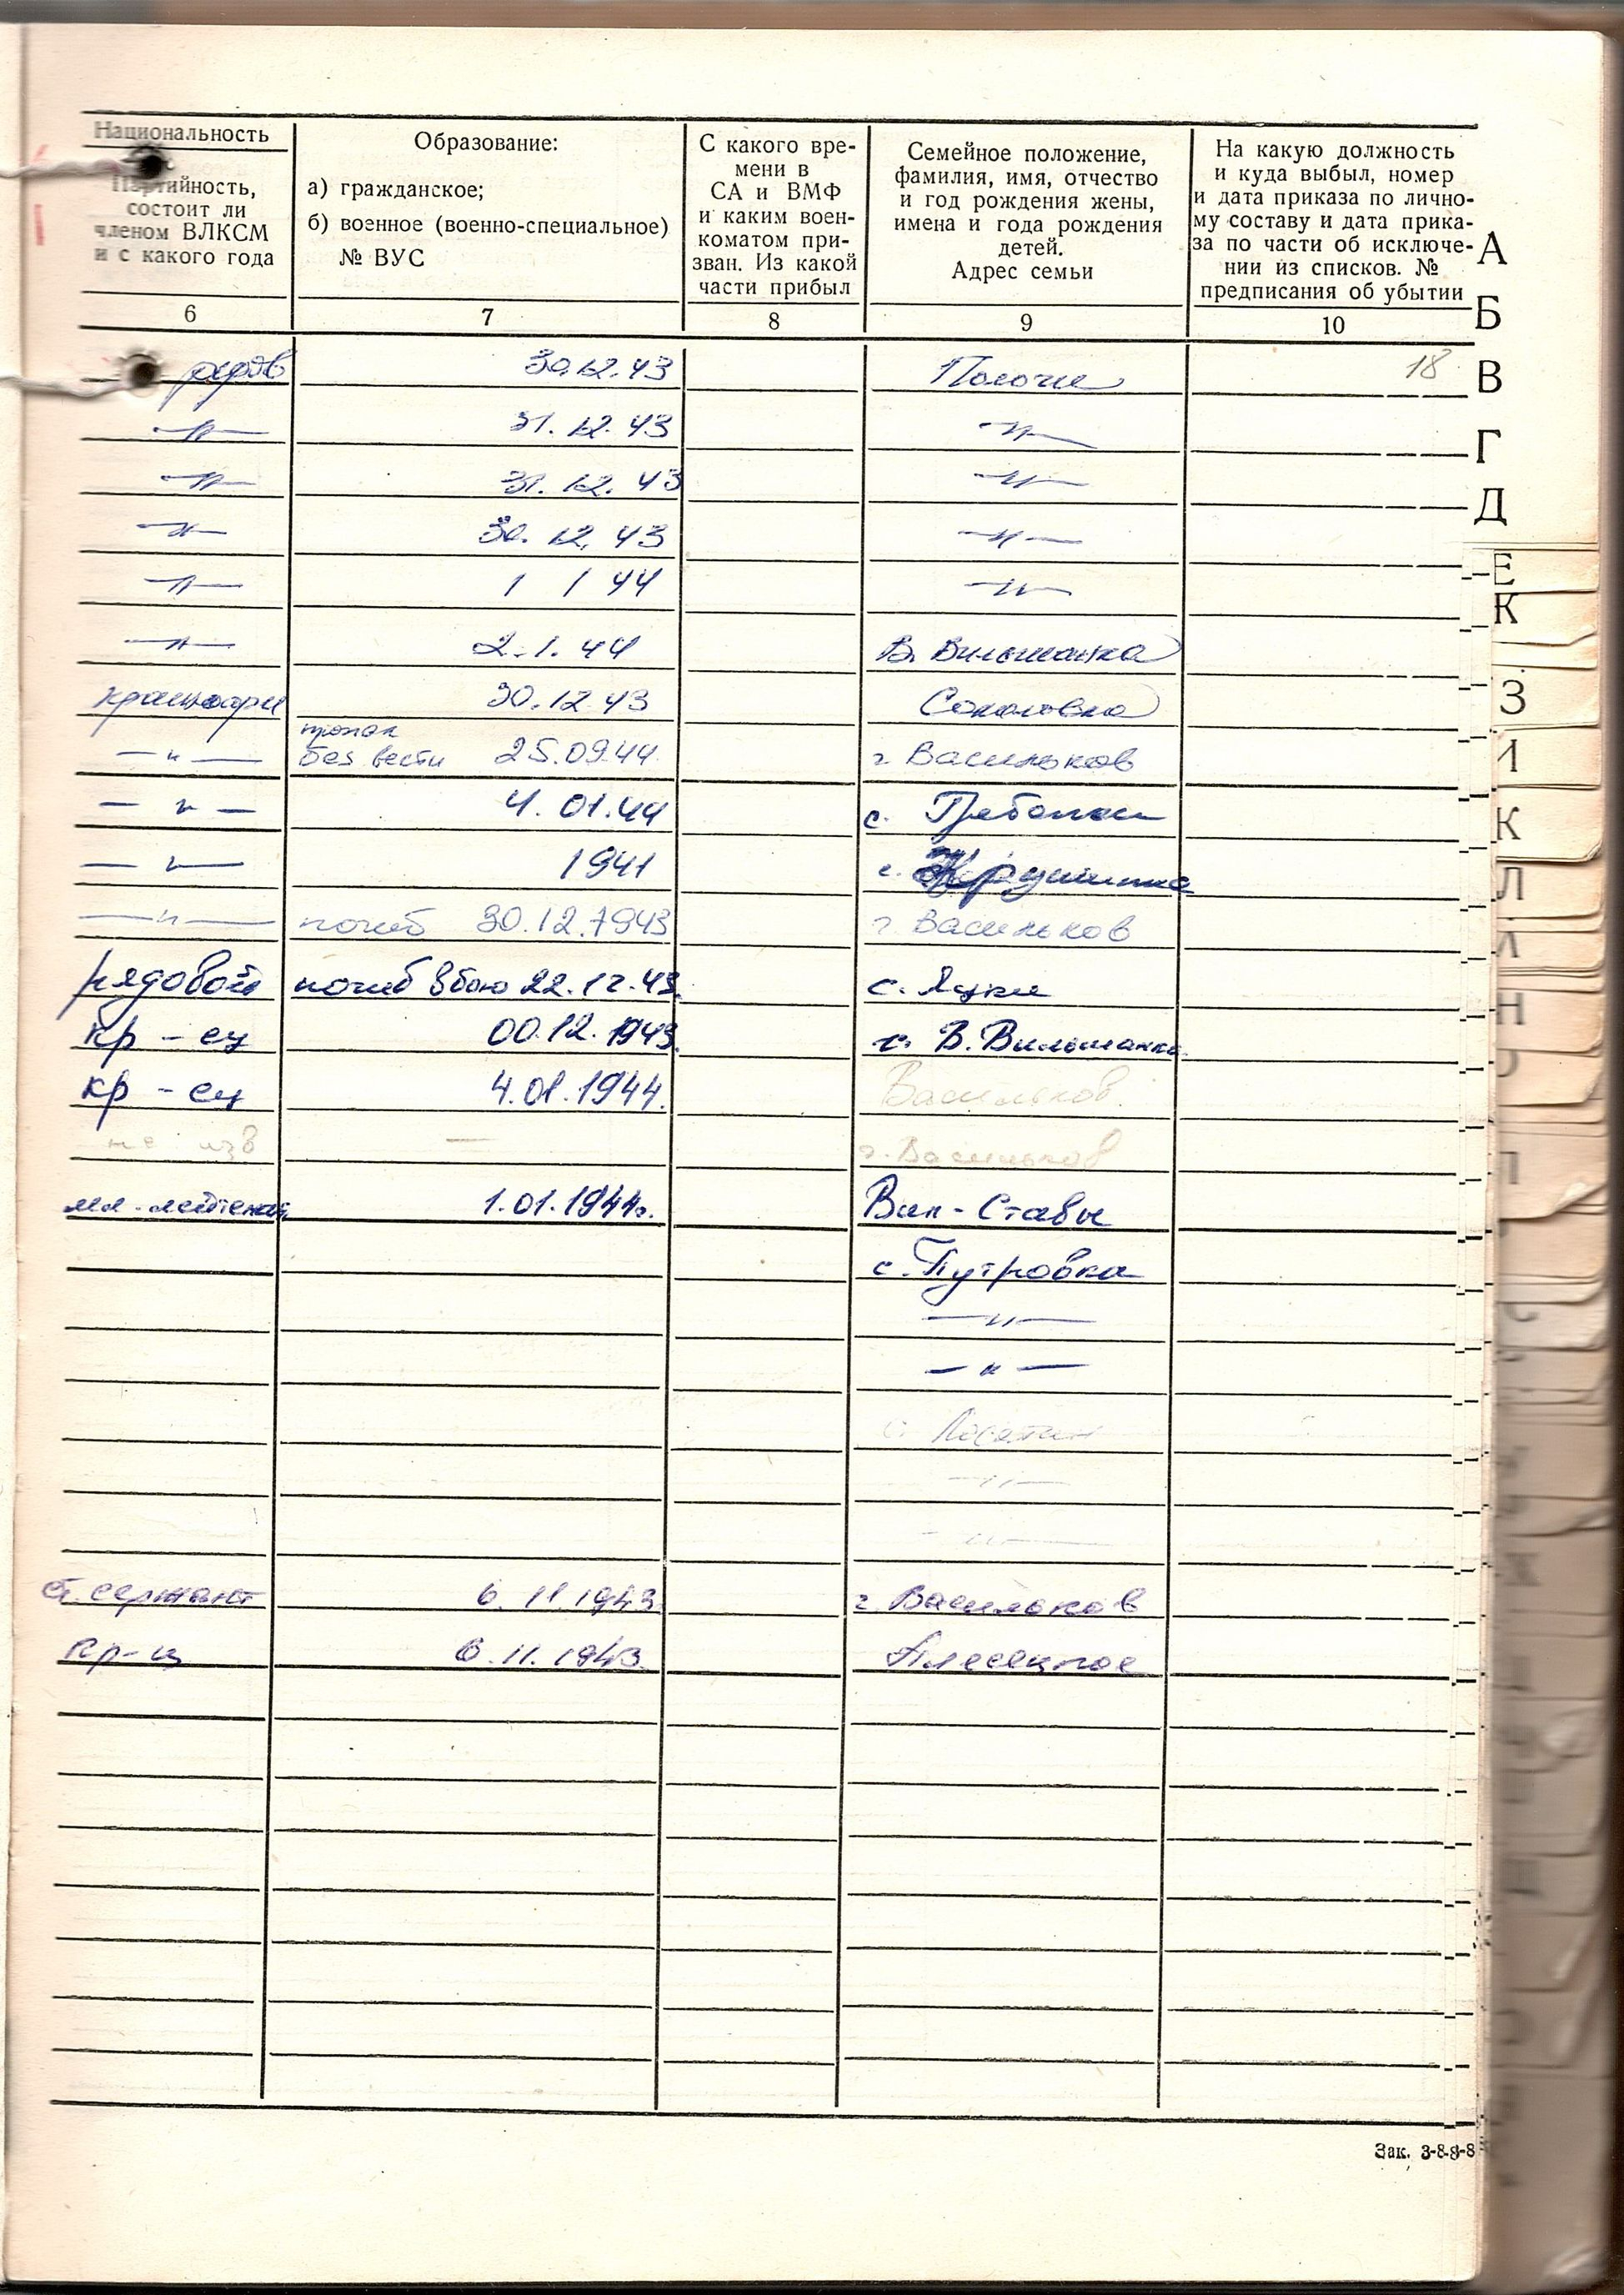 Национальность
Партийность,
состоит ли
членом ВЛКСМ
и с какого года
Образование:
а) гражданское;
б) военное (военно-специальное)
№ ВУС
С какого вре-
мени в
СА и ВМФ
и каким воен-
коматом при-
зван. Из какой
части прибыл
Семейное положение,
фамилия, имя, отчество
и год рождения жены,
имена и года рождения
детей.
Адрес семьи
На какую должность
и куда выбыл, номер
и дата приказа по лично-
му составу и дата прика-
за по части об исключе-
нии из списков. №
предписания об убытии
6 7 8 9 10
рядов 30.12.43 18
—"— 31.12.43 —"—
—"— 31.12.43 —"—
—"— 30.12.43 —"—
—"— 1 1 44 —"—
—"— 2.1.44 В. Вильшанка
30.12.43 Соколовка
пропал
—"— без вести 25.09.44 г Васильков
—"— 4.01.44 с.
—"— 1941 с.
—"— погиб 30.12.1943 г. Васильков
рядовой погиб в бою 22.12.43. с. Яцки
кр-ец 00.12.1943. с. В. Вильшанка
кр-ец 4.01.1944. Васильков.
не изв — г. Васильков
мл. лейтенант 1.01.1944г. Вин-Ставы
с. Путровка
—"—
—"—
с.
—"—
—"—
ст. сержант 6.11.1943. г. Васильков
кр-ц 6.11.1943. Плесецкое
А
Б
В
Г
Д
Е
К
З
К
Л
Н
П
Зак. 3-898